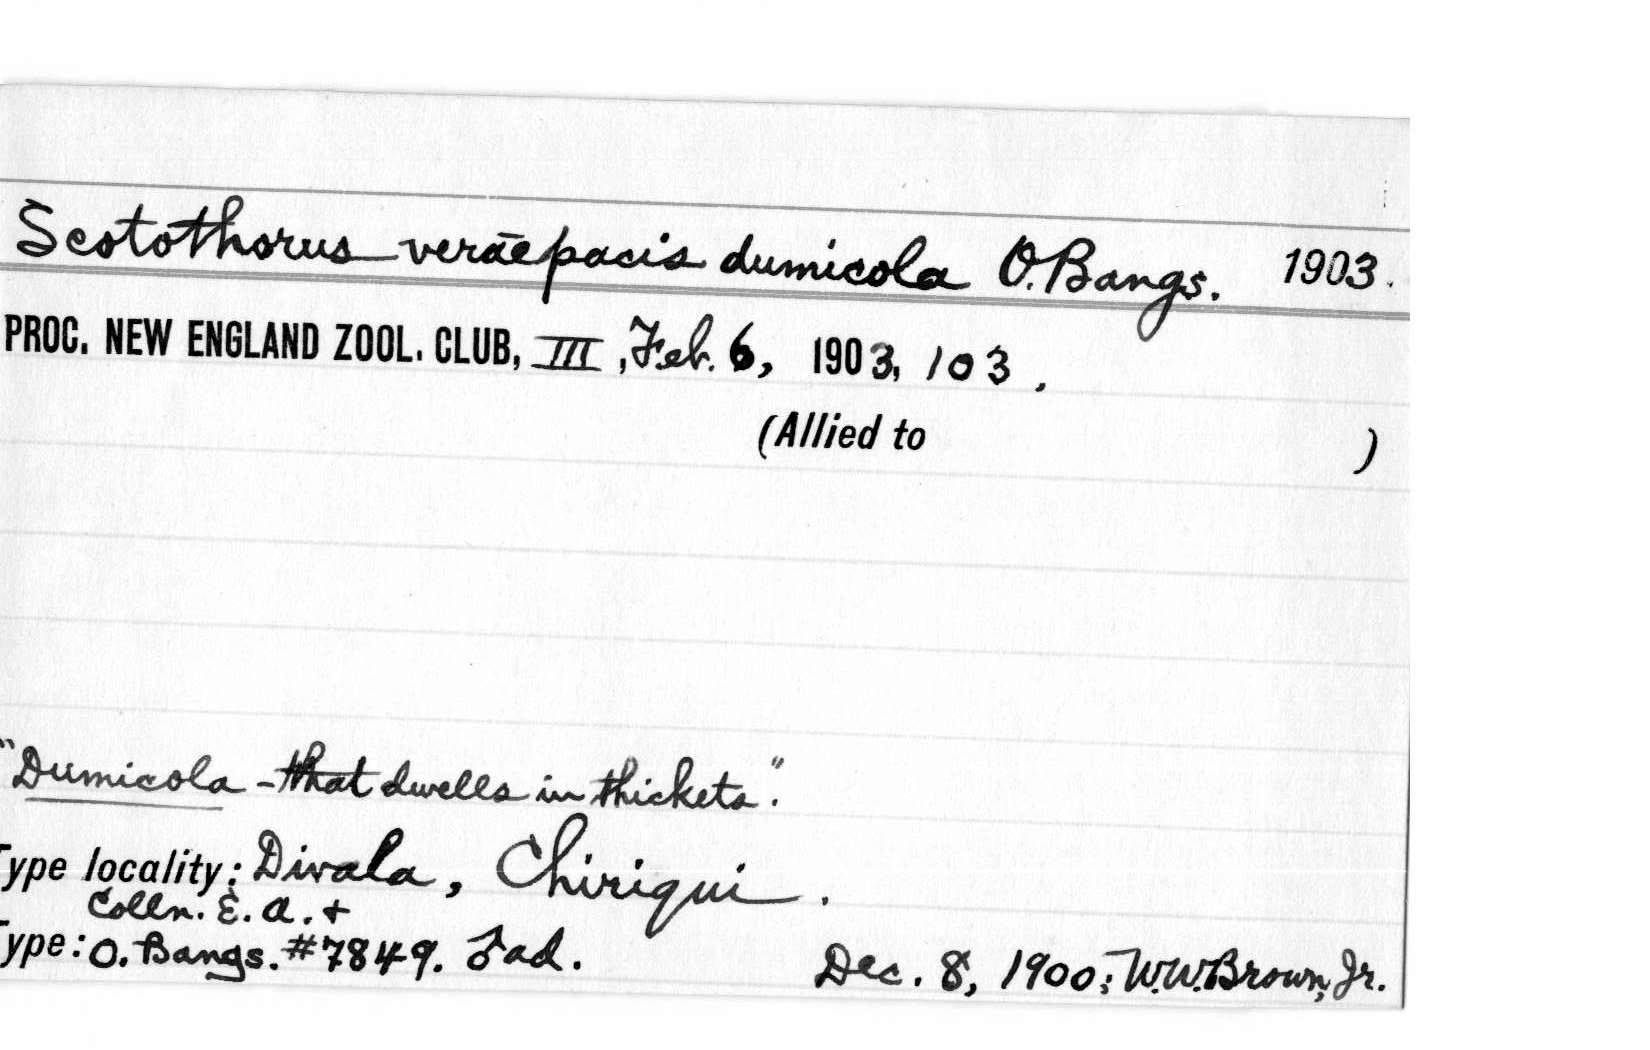 Scotothorus veraepacis dumicola O. Bangs. 1903.
PROC. NEW ENGLAND ZOOL. CLUB, III, Feb. 6, 1903, 103.
(Allied to )
"Dumicola - that dwells in thickets".
Type locality: Divala, Chiriqui.
Colln. E. A. +
Type: O. Bangs. #7849. ♂ad. Dec. 8, 1900; W.W. Brown, Jr.